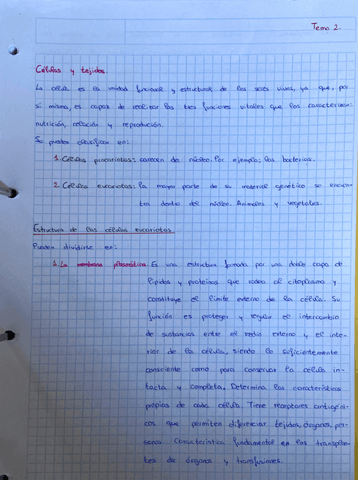 Tema 2.
Células y tejidos.
La célula es la unidad funcional y estructural de los seres vivos, ya que, por
sí misma, es capaz de realizar las tres funciones vitales que los caracterizan:
nutrición, relación y reproducción.
Se pueden clasificar en:
1. Células procariotas: carecen de núcleo. Por ejemplo; las bacterias.
2. Células eucariotas: la mayor parte de su material genético se encuen-
tra dentro del núcleo. Animales y vegetales.
Estructura de las células eucariotas
Pueden dividirse en:
1. La membrana plasmática. Es una estructura formada por una doble capa de
lípidos y proteínas que rodea al citoplasma y
constituye el límite externo de la célula. Su
función es proteger y regular el intercambio
de sustancias entre el medio externo y el inte-
rior de la célula, siendo lo suficientemente
consciente como para conservar la célula in-
tacta y completa. Determina las características
propias de cada célula. Tiene receptores antigéni-
cos que permiten diferenciar tejidos, órganos, per-
sonas. Característica fundamental en los transplan-
tes de órganos y transfusiones.